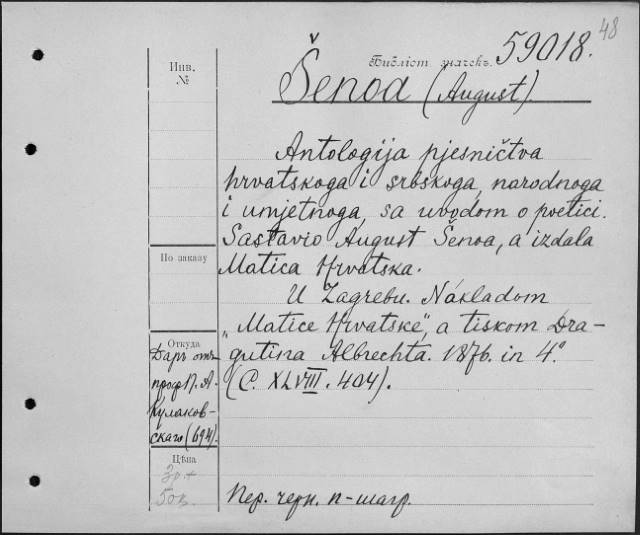 48
Библіот. значекъ. 59018.
Инв.
№
Šenoa (August).
Antologija pjesničtva
hrvatskoga i srbskoga, narodnoga
i umjetnoga, sa uvodom o poetici.
Sastavio August Šenoa, a izdala
Matica Hrvatska.
U Zagrebu. Nakladom
„Matice Hrvatske“, a tiskom Dra-
gutina Albrechta. 1876. in 4°.
(C. XLVIII. 404).
По заказу
Откуда
Даръ отъ
проф. П. А.
Кулаков-
скаго (694).
Цѣна
3р. +
50к.
Пер. черн. п-шагр.